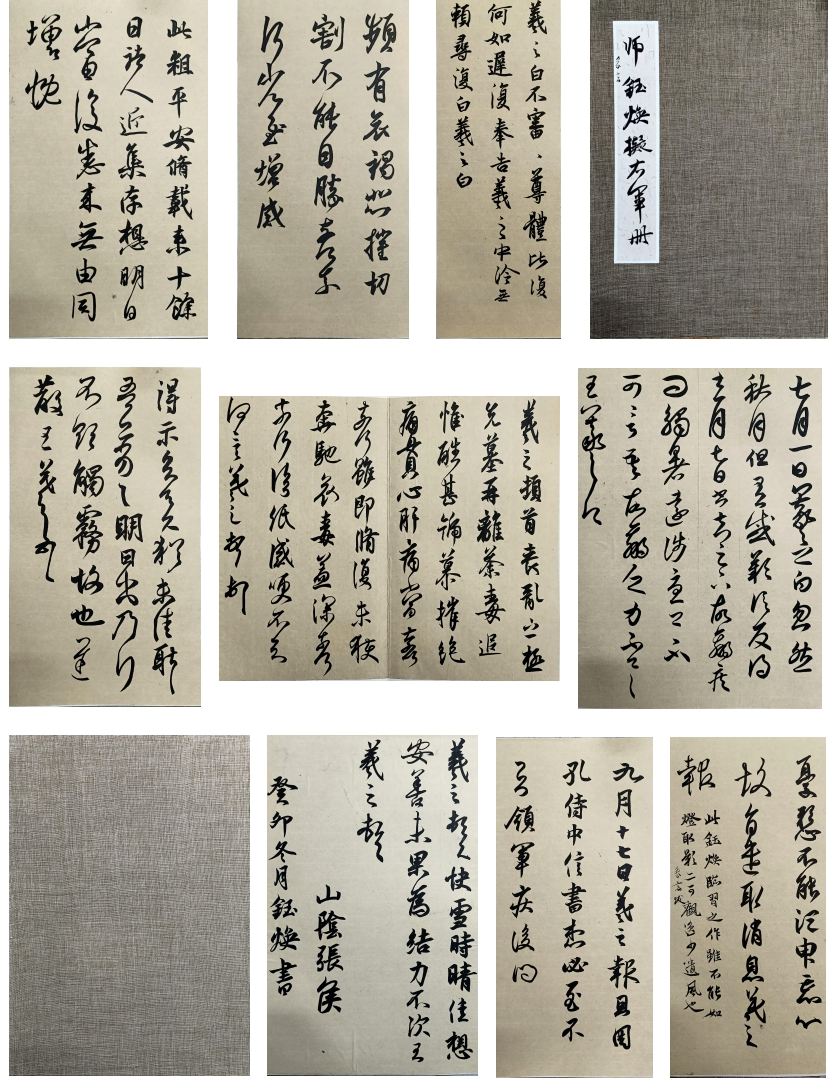 师鈺煥擬右軍册
羲之白不審、尊體比復
何如遲復奉告羲之中冷無
賴尋復白羲之白
頻有哀禍悲摧切
割不能自勝奈何奈
何省慰增感
此粗平安脩載來十餘
日諸人近集存想明日
當復悉來無由同
增慨
七月一日羲之白忽然
秋月但有感歎信反得
去月七日書知足下故羸疾
問觸暑遠涉憂卿不
可言吾故羸乏力不具
王羲之白
羲之頓首喪亂之極
先墓再離荼毒追
惟酷甚號慕摧絕
痛貫心肝痛當奈
奈何雖即脩復未獲
奔馳哀毒益深奈
奈何臨紙感哽不知
何言羲之頓首頓首
得示知足下猶未佳耿耿
吾亦劣劣明日出乃行
不欲觸霧故也遲
散王羲之頓首
憂懸不能須臾忘心
故旨遣取消息羲之
報
此鈺煥臨習之作雖不能如
燈取影亦可觀少遺風也
九月十七日羲之報且因
孔侍中信書想必至不
知領軍疾後問
羲之頓首快雪時晴佳想
安善未果為結力不次王
羲之頓首
山陰張侯
癸卯冬月鈺煥書